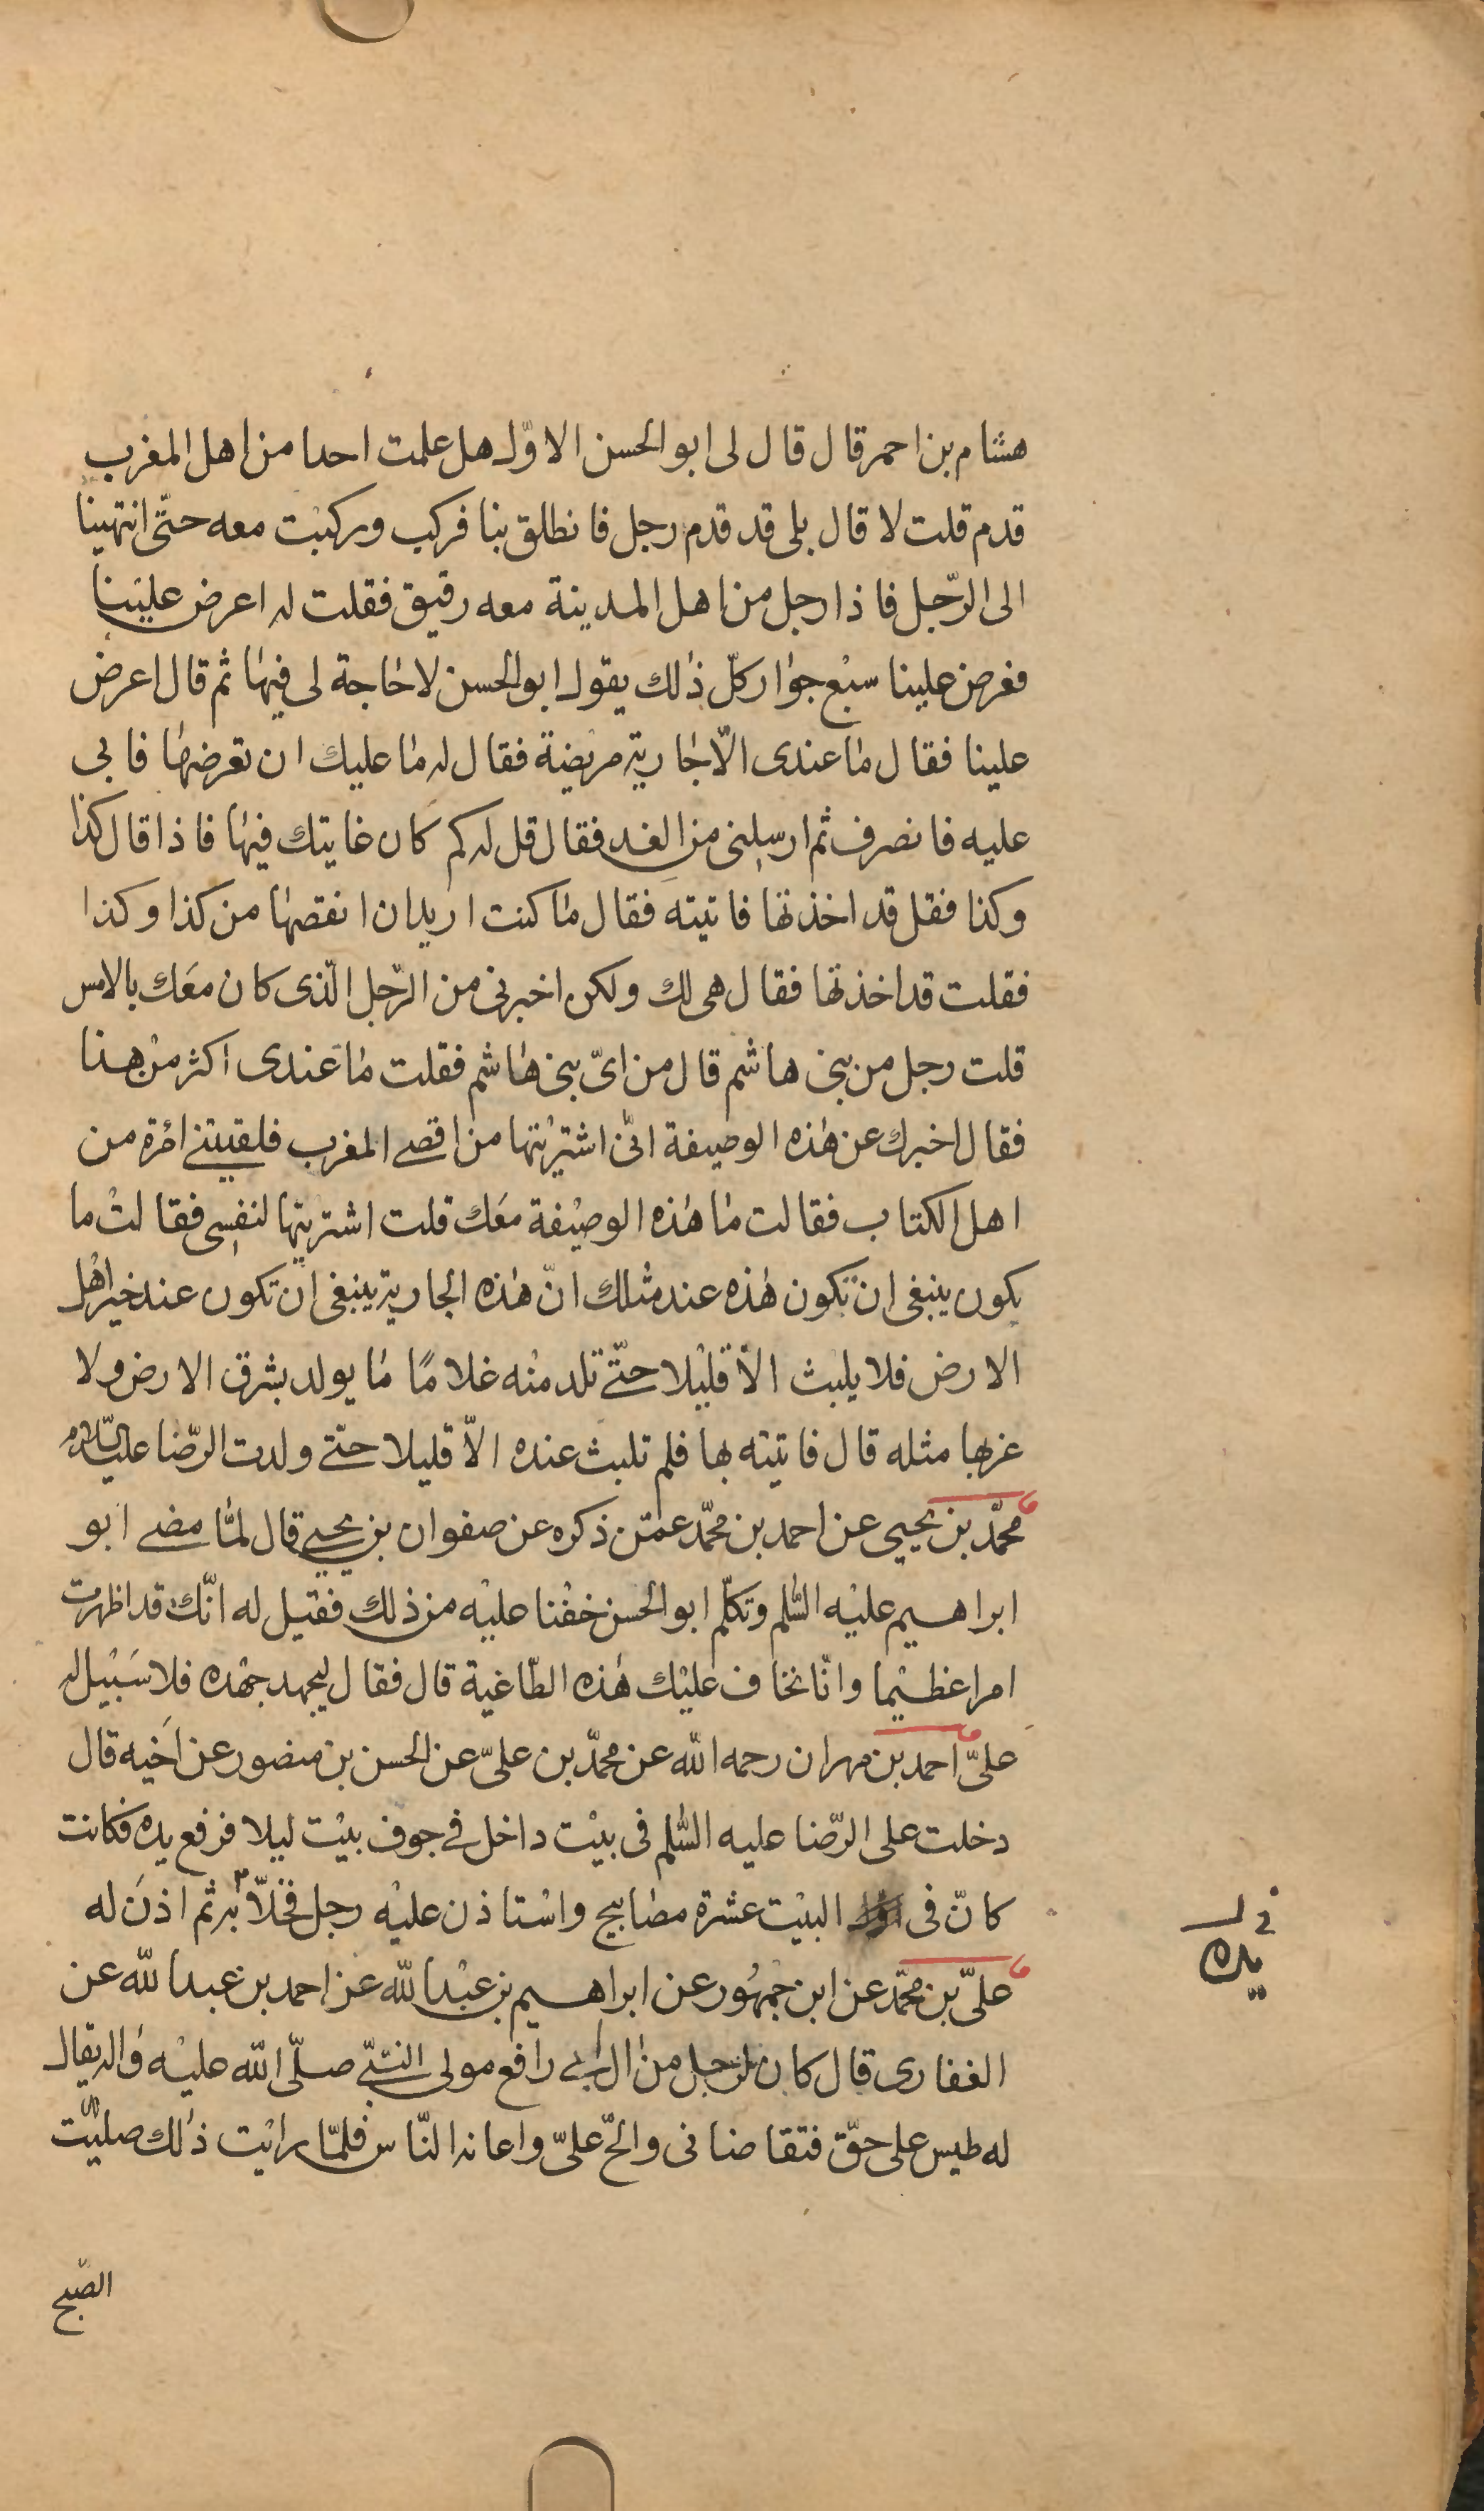 هشام بن احمر قال قال لى ابو الحسن الاوّل هل علمت احدا من اهل المغرب
قدم قلت لا قال بلى قد قدم رجل فانطلق بنا فركب وركبت معه حتّى انتهينا
الى الرّجل فاذا رجل من اهل المدينة معه رقيق فقلت له اعرض علينا
فعرض علينا سبع جوار كلّ ذلك يقول ابو الحسن لا حاجة لى فيها ثم قال اعرض
علينا فقال ما عندى الّا جارية مريضة فقال له ما عليك ان تعرضها فابى
عليه فانصرف ثم ارسلنى من الغد فقال قل له كم كان غايتك فيها فاذا قال كذا
وكذا فقل قد اخذتها فاتيته فقال ما كنت اريد ان انقصها من كذا وكذا
فقلت قد اخذتها فقال هى لك ولكن اخبرنى من الرّجل الّذى كان معك بالامس
قلت رجل من بنى هاشم قال من اىّ بنى هاشم فقلت ما عندى اكثر من هذا
فقال اخبرك عن هذه الوصيفة انّى اشتريتها من اقصى المغرب فلقيتنى امرة من
اهل الكتاب فقالت ما هذه الوصيفة معك قلت اشتريتها لنفسى فقالت ما
يكون ينبغى ان تكون هذه عند مثلك انّ هذه الجارية ينبغى ان تكون عند خير اهل
الارض فلا يلبث الّا قليلا حتّى تلد منه غلامًا ما يولد بشرق الارض ولا
غربها مثله قال فاتيته بها فلم تلبث عنده الّا قليلا حتّى ولدت الرّضا عليه السّلام
محمّد بن يحيى عن احمد بن محمّد عمّن ذكره عن صفوان بن يحيى قال لمّا مضى ابو
ابراهيم عليه السّلم وتكلّم ابو الحسن خفنا عليه من ذلك فقيل له انّك قد اظهرت
امرا عظيما وانّا نخاف عليك هذه الطّاغية قال فقال ليجهد جهده فلا سبيل له
علىّ احمد بن مهران رحمه الله عن محمّد بن علىّ عن الحسن بن منصور عن اخيه قال
دخلت على الرّضا عليه السّلم فى بيت داخل فى جوف بيت ليلا فرفع يده فكانت
كانّ فى البيت عشرة مصابيح واستاذن عليه رجل فخلّا ثم اذن له
علىّ بن محمّد عن ابن جمهور عن ابراهيم بن عبد الله عن احمد بن عبد الله عن
الغفارى قال كان لرجل من ال ابى رافع مولى النّبىّ صلّى الله عليه واله يقال
له طيس على حقّ فتقاضانى والحّ علىّ واعانه النّاس فلمّا رايت ذلك صلّيت
الصّبح
يده